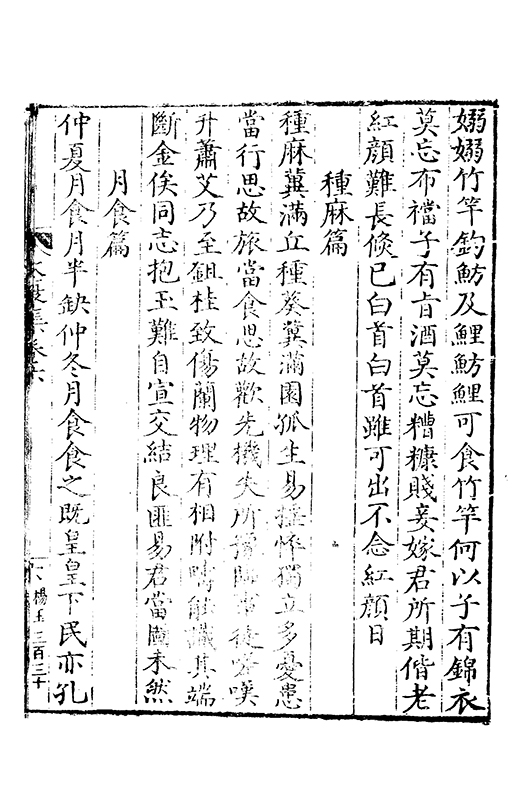 嫋嫋竹竿釣魴及鯉魴鯉可食竹竿何以子有錦衣
莫忘布襠子有旨酒莫忘糟糠賤妾嫁君所期偕老
紅顔難長倐已白首白首雖可出不念紅顔日
種麻篇
種麻冀滿丘種葵冀滿園孤生易憔悴獨立多憂患
當行思故旅當食思故歡先機失所 徒咨嘆
升蕭艾乃至鉏桂致傷蘭物理有相附疇能識其端
斷金俟同志抱玉難自宣交結良匪易君當圖未然
月食篇
仲夏月食月半缺仲冬月食食之既皇皇下民亦孔
大復集卷六
八 楊玉 三百三十